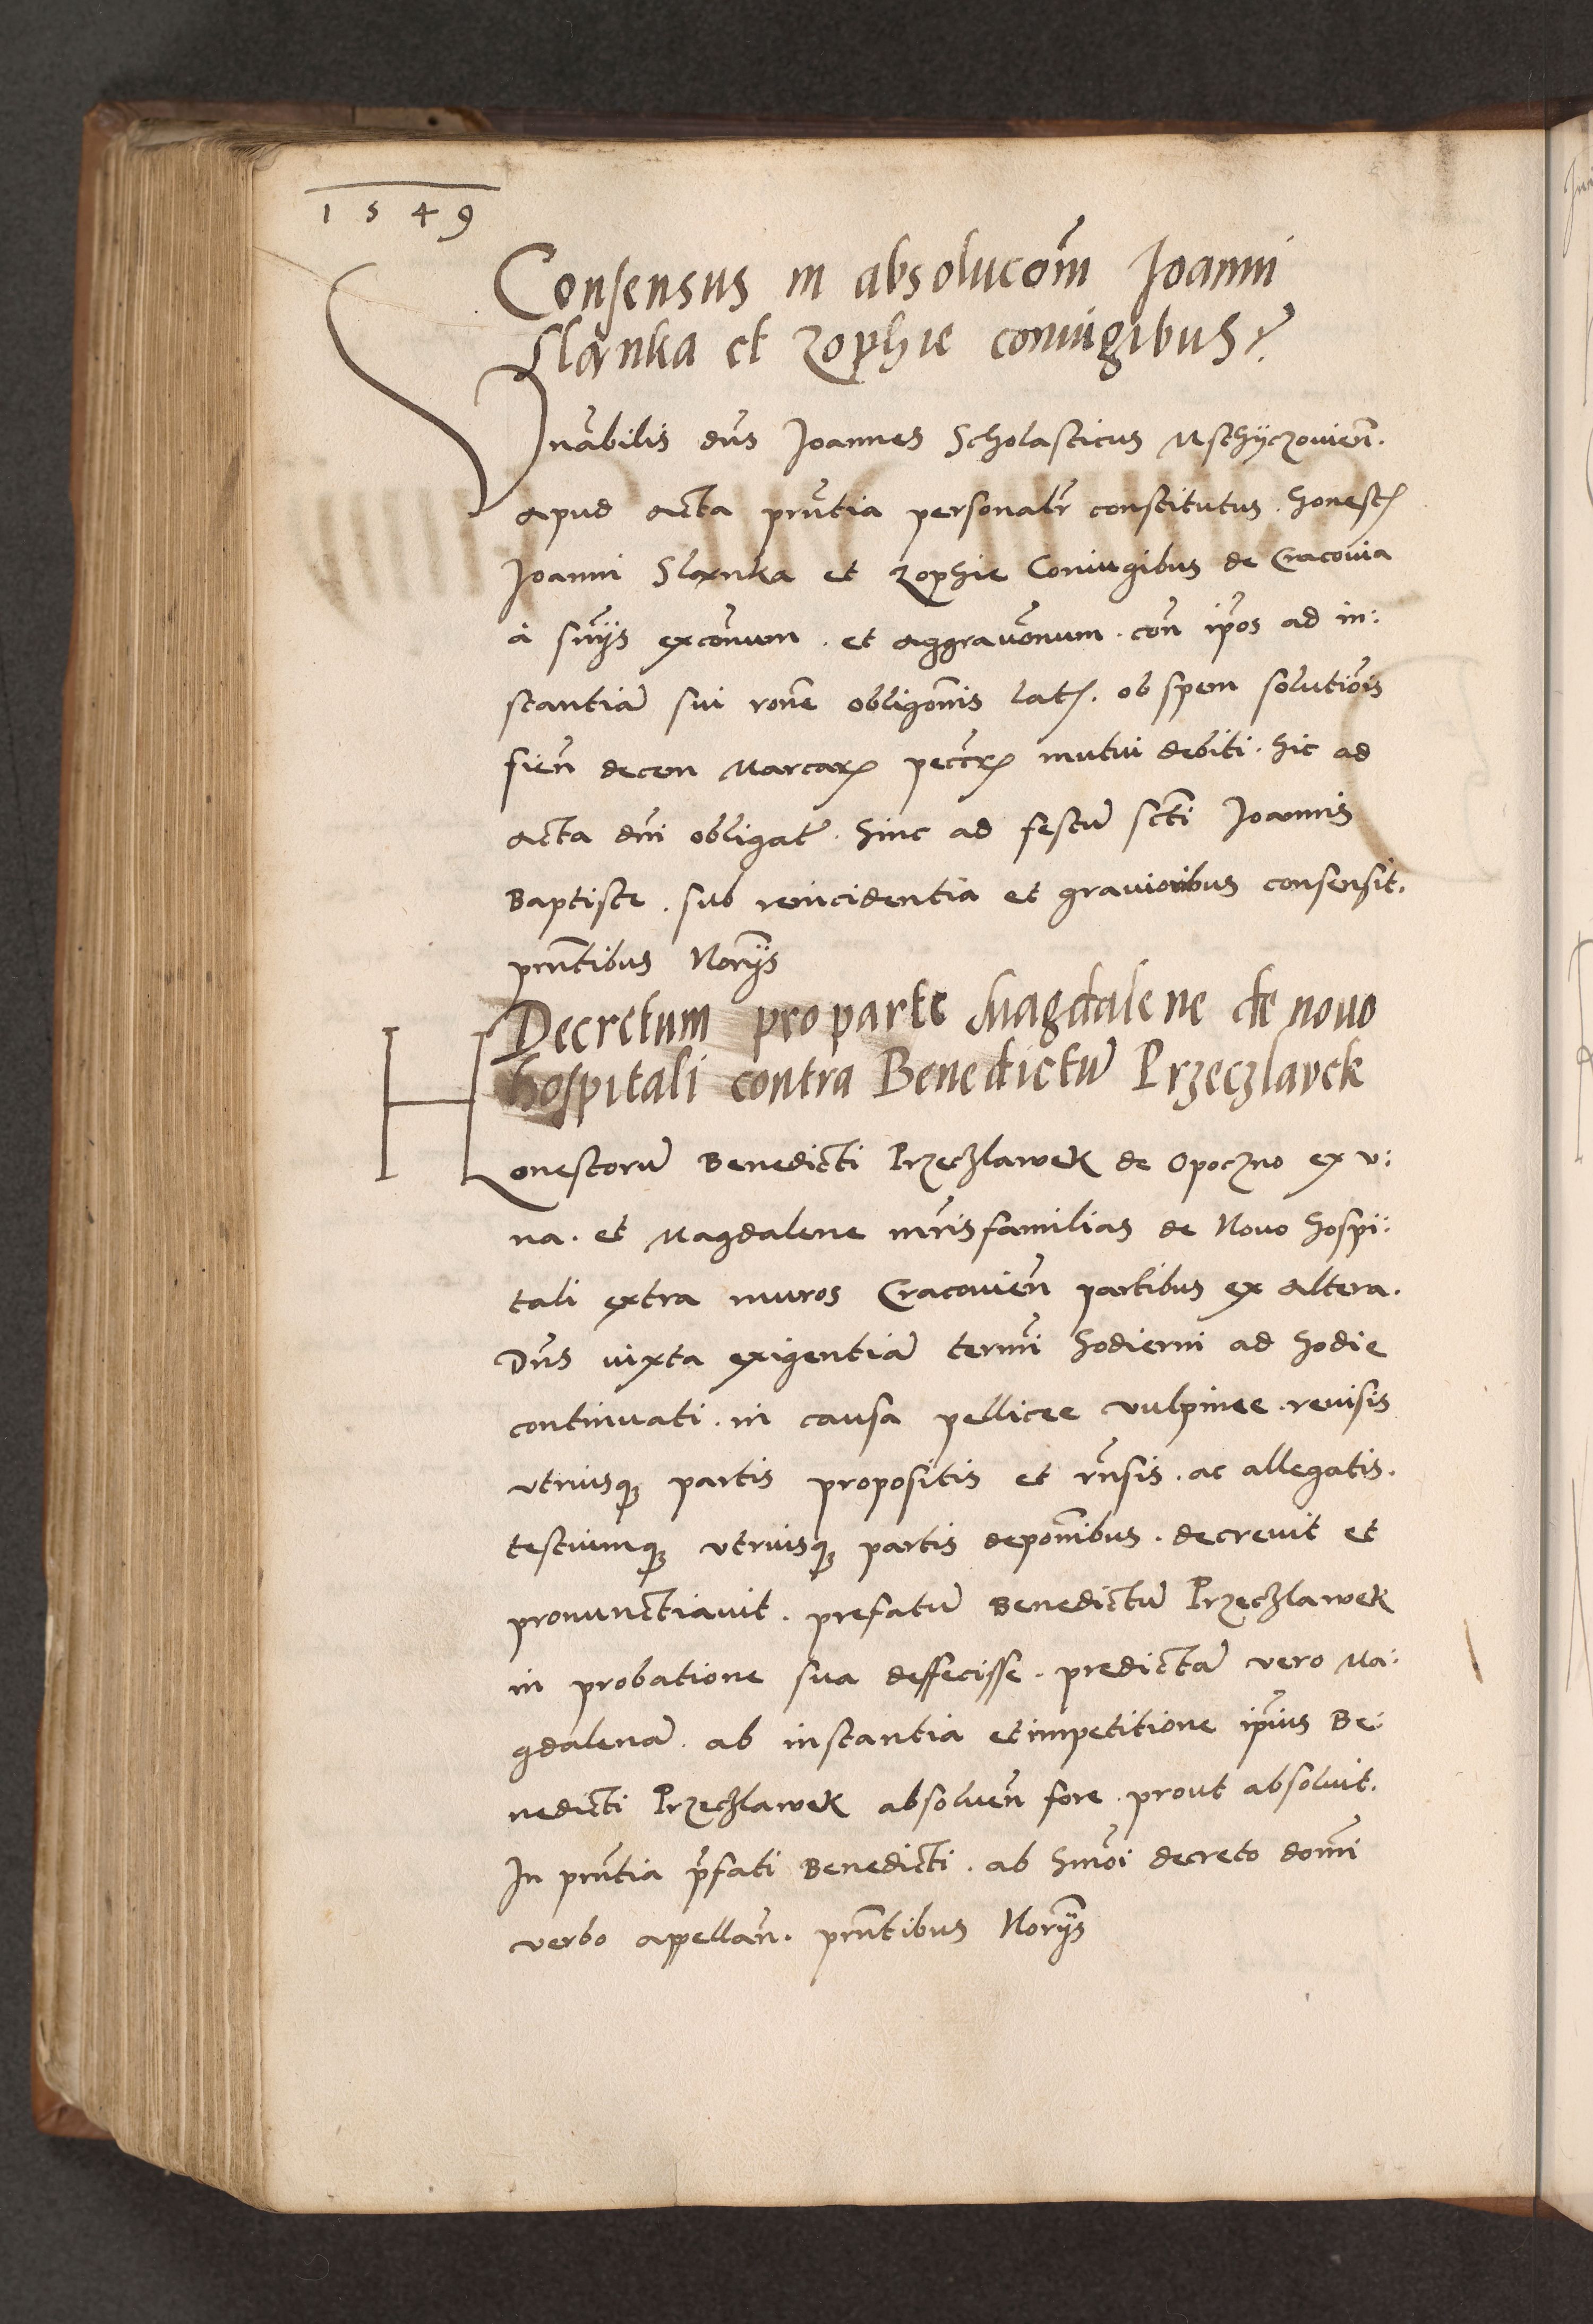 1549
Consensus in absolucom̃ Joanni
Slanka et Zophie coniugibus
Vnãbilis dñs Joannes Scholasticus Msthÿczouieñ.
apud acta pñtia personalr̃ constitutus. honestꝭ
Joanni Slanka et Zophie Coniugibus de Cracouia
à sñijs excõnum. et aggrauõnum. con̄ ip̃os ad in:
stantiã sui rõne obligõnis latꝭ. ob spem solutiõis
fieñ decem Marcaꝝ pecc̃ꝝ mutui debiti. hic ad
acta dñi obligat̃. hinc ad festũ sc̃ti Joannis
Baptiste. sub reincidentia et grauioribus consensit.
pñtibus Norijs
Decretum pro parte Magdalene de nouo
hospitali contra Benedictũ Przeczlavek
Honestorũ Benedicti Przeczlawek de Opoczno ex v:
na. et Magdalene mr̃isfamilias de Nouo hospi:
tali extra muros Cracouieñ partibus ex altera.
Dñs iuxta exigentiã termĩ hodierni ad hodie
continuati. in causa pellicee vulpinee. reuisis
vtriusqꝫ partis propositis et rñsis. ac allegatis.
testiumqꝫ vtriusqꝫ partis deponĩbus. decreuit et
pronunctiauit. prefatũ Benedictũ Przeczlawek
in probatione sua deffecisse. predictã vero Ma:
gdalenã. ab instantia et impetitione ip̃ius Be:
nedicti Przeczlawek absolueñ fore. prout absoluit.
In pñtia p̃fati Benedicti. ab hm̃oi decreto domĩ
verbo appellañ. pñtibus Norijs